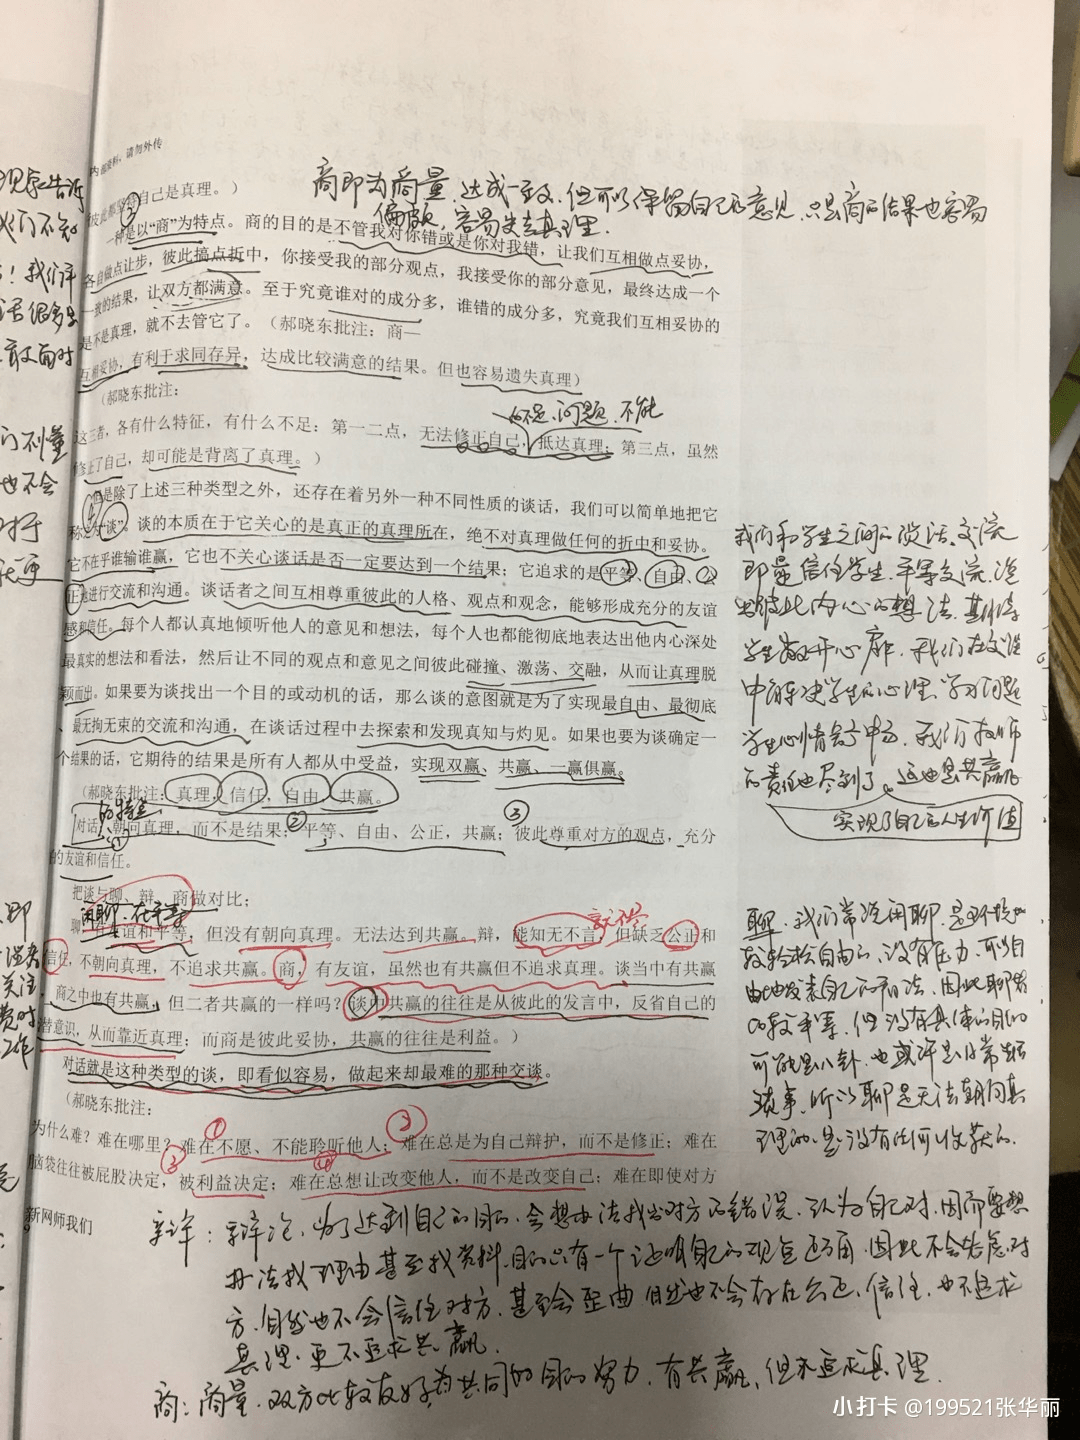 内部资料，请勿外传
商即为商量，达成一致，但可以保留自己的意见，只是商的结果也容易
偏颇，容易失去真理。
自己是真理。）
②
一种是以“商”为特点。商的目的是不管我对你错或是你对我错，让我们互相做点妥协，
各自做点让步，彼此搞点折中，你接受我的部分观点，我接受你的部分意见，最终达成一个
一致的结果，让双方都满意。至于究竟谁对的成分多，谁错的成分多，究竟我们互相妥协的
是不是真理，就不去管它了。（郝晓东批注：商—
互相妥协，有利于求同存异，达成比较满意的结果。但也容易遗失真理）
（郝晓东批注：
不足、问题、不能
这三者，各有什么特征，有什么不足：第一二点，无法修正自己，抵达真理；第三点，虽然
修正了自己，却可能是背离了真理。）
但是除了上述三种类型之外，还存在着另外一种不同性质的谈话，我们可以简单地把它
称之为“谈”。谈的本质在于它关心的是真正的真理所在，绝不对真理做任何的折中和妥协。
它不在乎谁输谁赢，它也不关心谈话是否一定要达到一个结果；它追求的是平等、自由、公
正地进行交流和沟通。谈话者之间互相尊重彼此的人格、观点和观念，能够形成充分的友谊
感和信任。每个人都认真地倾听他人的意见和想法，每个人也都能彻底地表达出他内心深处
最真实的想法和看法，然后让不同的观点和意见之间彼此碰撞、激荡、交融，从而让真理脱
颖而出。如果要为谈找出一个目的或动机的话，那么谈的意图就是为了实现最自由、最彻底
、最无拘无束的交流和沟通，在谈话过程中去探索和发现真知与灼见。如果也要为谈确定一
个结果的话，它期待的结果是所有人都从中受益，实现双赢、共赢、一赢俱赢。
（郝晓东批注：真理、信任，自由、共赢。
的特征
对话：①朝向真理，而不是结果；②平等、自由、公正，共赢；③彼此尊重对方的观点，充分
的友谊和信任。
把谈与聊、辩、商做对比；
闲聊，在平等
聊，有友谊和平等，但没有朝向真理。无法达到共赢。辩，能知无不言，但缺乏公正和
信任，不朝向真理，不追求共赢。商，有友谊，虽然也有共赢但不追求真理。谈当中有共赢
，商之中也有共赢，但二者共赢的一样吗？谈中共赢的往往是从彼此的发言中，反省自己的
潜意识，从而靠近真理；而商是彼此妥协，共赢的往往是利益。）
对话就是这种类型的谈，即看似容易，做起来却最难的那种交谈。
（郝晓东批注：
为什么难？难在哪里？①难在不愿、不能聆听他人；②难在总是为自己辩护，而不是修正；难在
③脑袋往往被屁股决定，被利益决定；④难在总想让改变他人，而不是改变自己；难在即使对方
新网师我们
我们和学生之间的谈话、交流
即是信任学生，平等交流，说
出彼此内心的想法，
学生敞开心扉，我们在交谈
中解决学生的心理、学习问题
学生心情舒畅，我们教师
的责任也尽到了。这也是共赢
实现了自己的人生价值
聊：我们常说闲聊，是
较轻松自由的，没有压力，可以自
由地发表自己的看法，因此聊
的较平等，但没有具体的目的
可能是八卦，也或许是日常生活
琐事，所以聊是无法朝向真
理的，是没有任何收获的。
辩：辩论，为了达到自己的目的，会想办法找出对方的错误，认为自己对，因而要想
办法找理由甚至找资料，目的只有一个证明自己的观点正确，因此不会考虑对
方，自然也不会信任对方，甚至会歪曲，自然也不会存在公正、信任，也不追求
真理，更不追求共赢。
商：商量，双方比较友好，为共同的目的努力，有共赢，但不追求真理。
小打卡 @199521张华丽